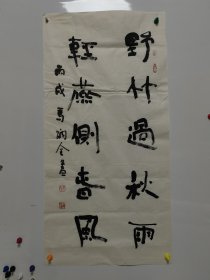 野竹過秋雨
輕燕側春風
丙戌 馬炳全書